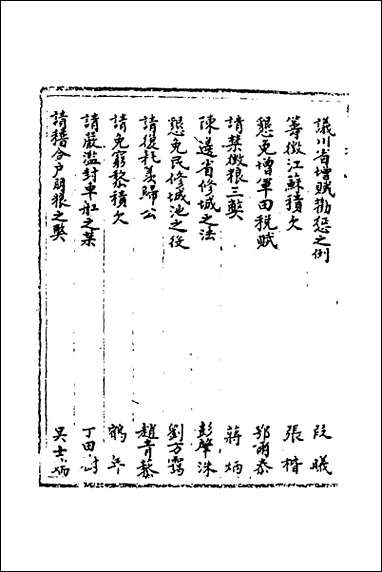 議川省增賦勸懲之例 段曦
籌徵江蘇積欠 張楷
懇免增軍田稅賦 鄂爾泰
請禁徵粮三弊 蔣炳
陳邊省修城之法 彭肇洙
懇免民修城池之役 劉方靄
請復耗羨歸公 趙青藜
請免窮黎積欠 鶴年
請嚴濫封車船之禁 丁田澍
請稽合戶朋粮之弊 吳士